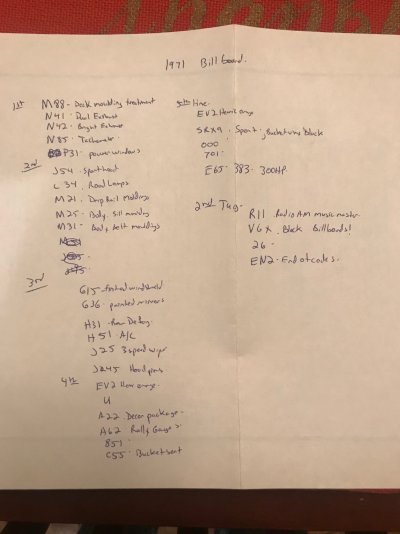 1971 Billboard.
1st M88 - Deck moulding treatment
N41 - Dual Exhaust
N42 - Bright Exhaust
N85 - Tachometer
P31 - power windows
2nd
J54 . Sport hood
L34 . Road Lamps
M21 . Drip Rail Moldings
M25 - Body Sill moulding
M31 - Body belt mouldings
3rd
G15 - tinted windshield
G36 . painted mirrors
H31 - Rear Defog
H51 A/C
J25 3 speed wiper
J45 Hood pins
4th
EV2
U
A22 Decor package.
A62 Rally Gauges
B51
C55 - Bucket seat
5th line.
EV2 Hemi orange
Sport, Bucket Black
000
701
E65 - 383 - 300HP.
2nd Tag -
R11 Radio AM music master.
V6X . Black Billboards!
26 -
EN2 - End of codes.